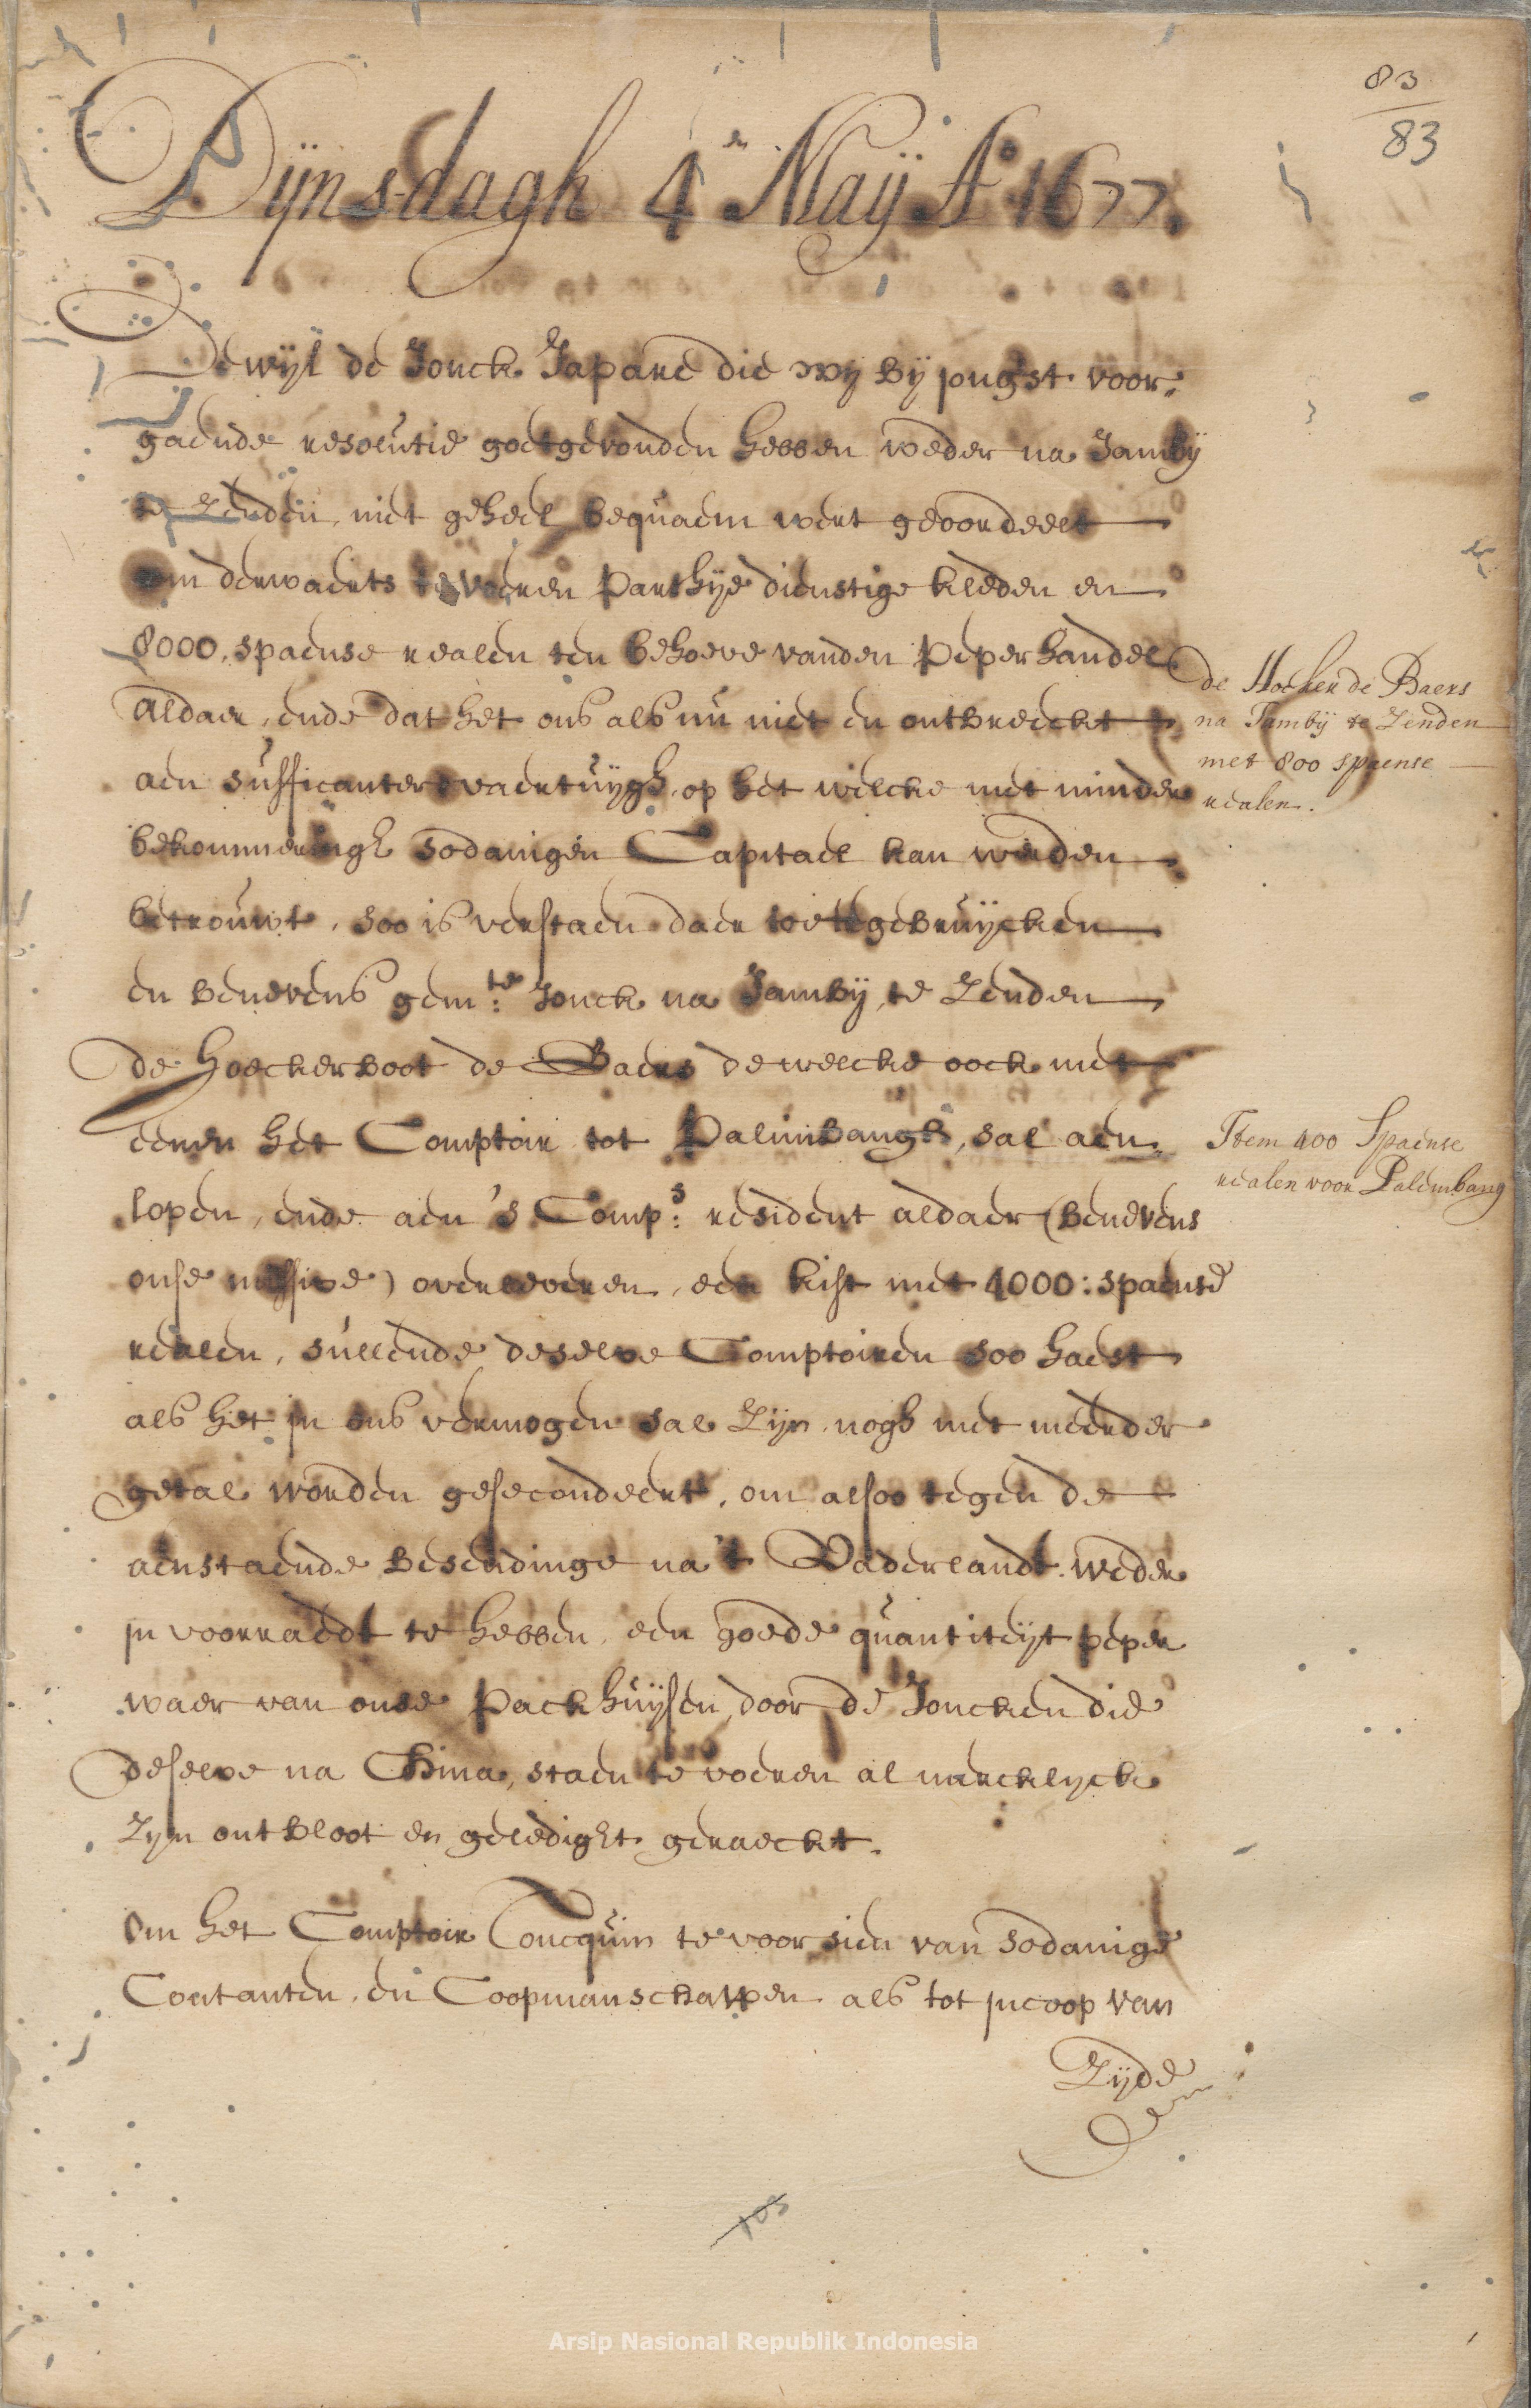 83
83
Dijnsdagh 4en Maij Ao 1677.
Dewijl de Jonck Japare die wy bij jnghst voor„
gaende resolutie goetgevonden hebben weder na Jamby
te zenden, niet geheel bequaem wert geoordeelt
om derwaerts te voeren parthije dienstige kleden en
8000. spaense realen ten behoeve vanden peperhandel
aldaer, ende dat het ons als nu niet en ontbreeckt
aen sufficanter vaertuijgh, op het welcke met minder
bekommeringh sodanigen Capitael kan werden
betrouwt, soo is verstaen daer toe te gebruijcken
en benevens gemte: Jonck na Jambij te zenden
de hoeckerboot de Baers dewelcke oock met
eenen het Comptoir tot Palimbangh, sal aen„
lopen, ende aen 's Comps: resident aldaer (benevens
onse missive) overleveren, een kist met 4000: spaense
realen, sullende deselve Comptoiren soo haest
als het in ons vermogen sal zijn nogh met meerder
getal worden gesecondeert, om alsoo tegen de
aenstaende besendinge na 't Vaderlandt weder
in voorraedt te hebben, een goede quantiteijt peper
waer van onse packhuijsen door de Joncken die
deselve na China, staen te voeren al mercklijck
zijn ontbloot en geledight geraeckt.
Om het Comptoir Toncquin te voorsien van sodanige
Contanten, en Coopmanschappen als tot incoop van
Zijde
de Hoeker de Baers
na Jambij te Zenden
met 800 spaense
realen.
Item 400 Spaense
realen voor Palembang
103
Arsip Nasional Republik Indonesia